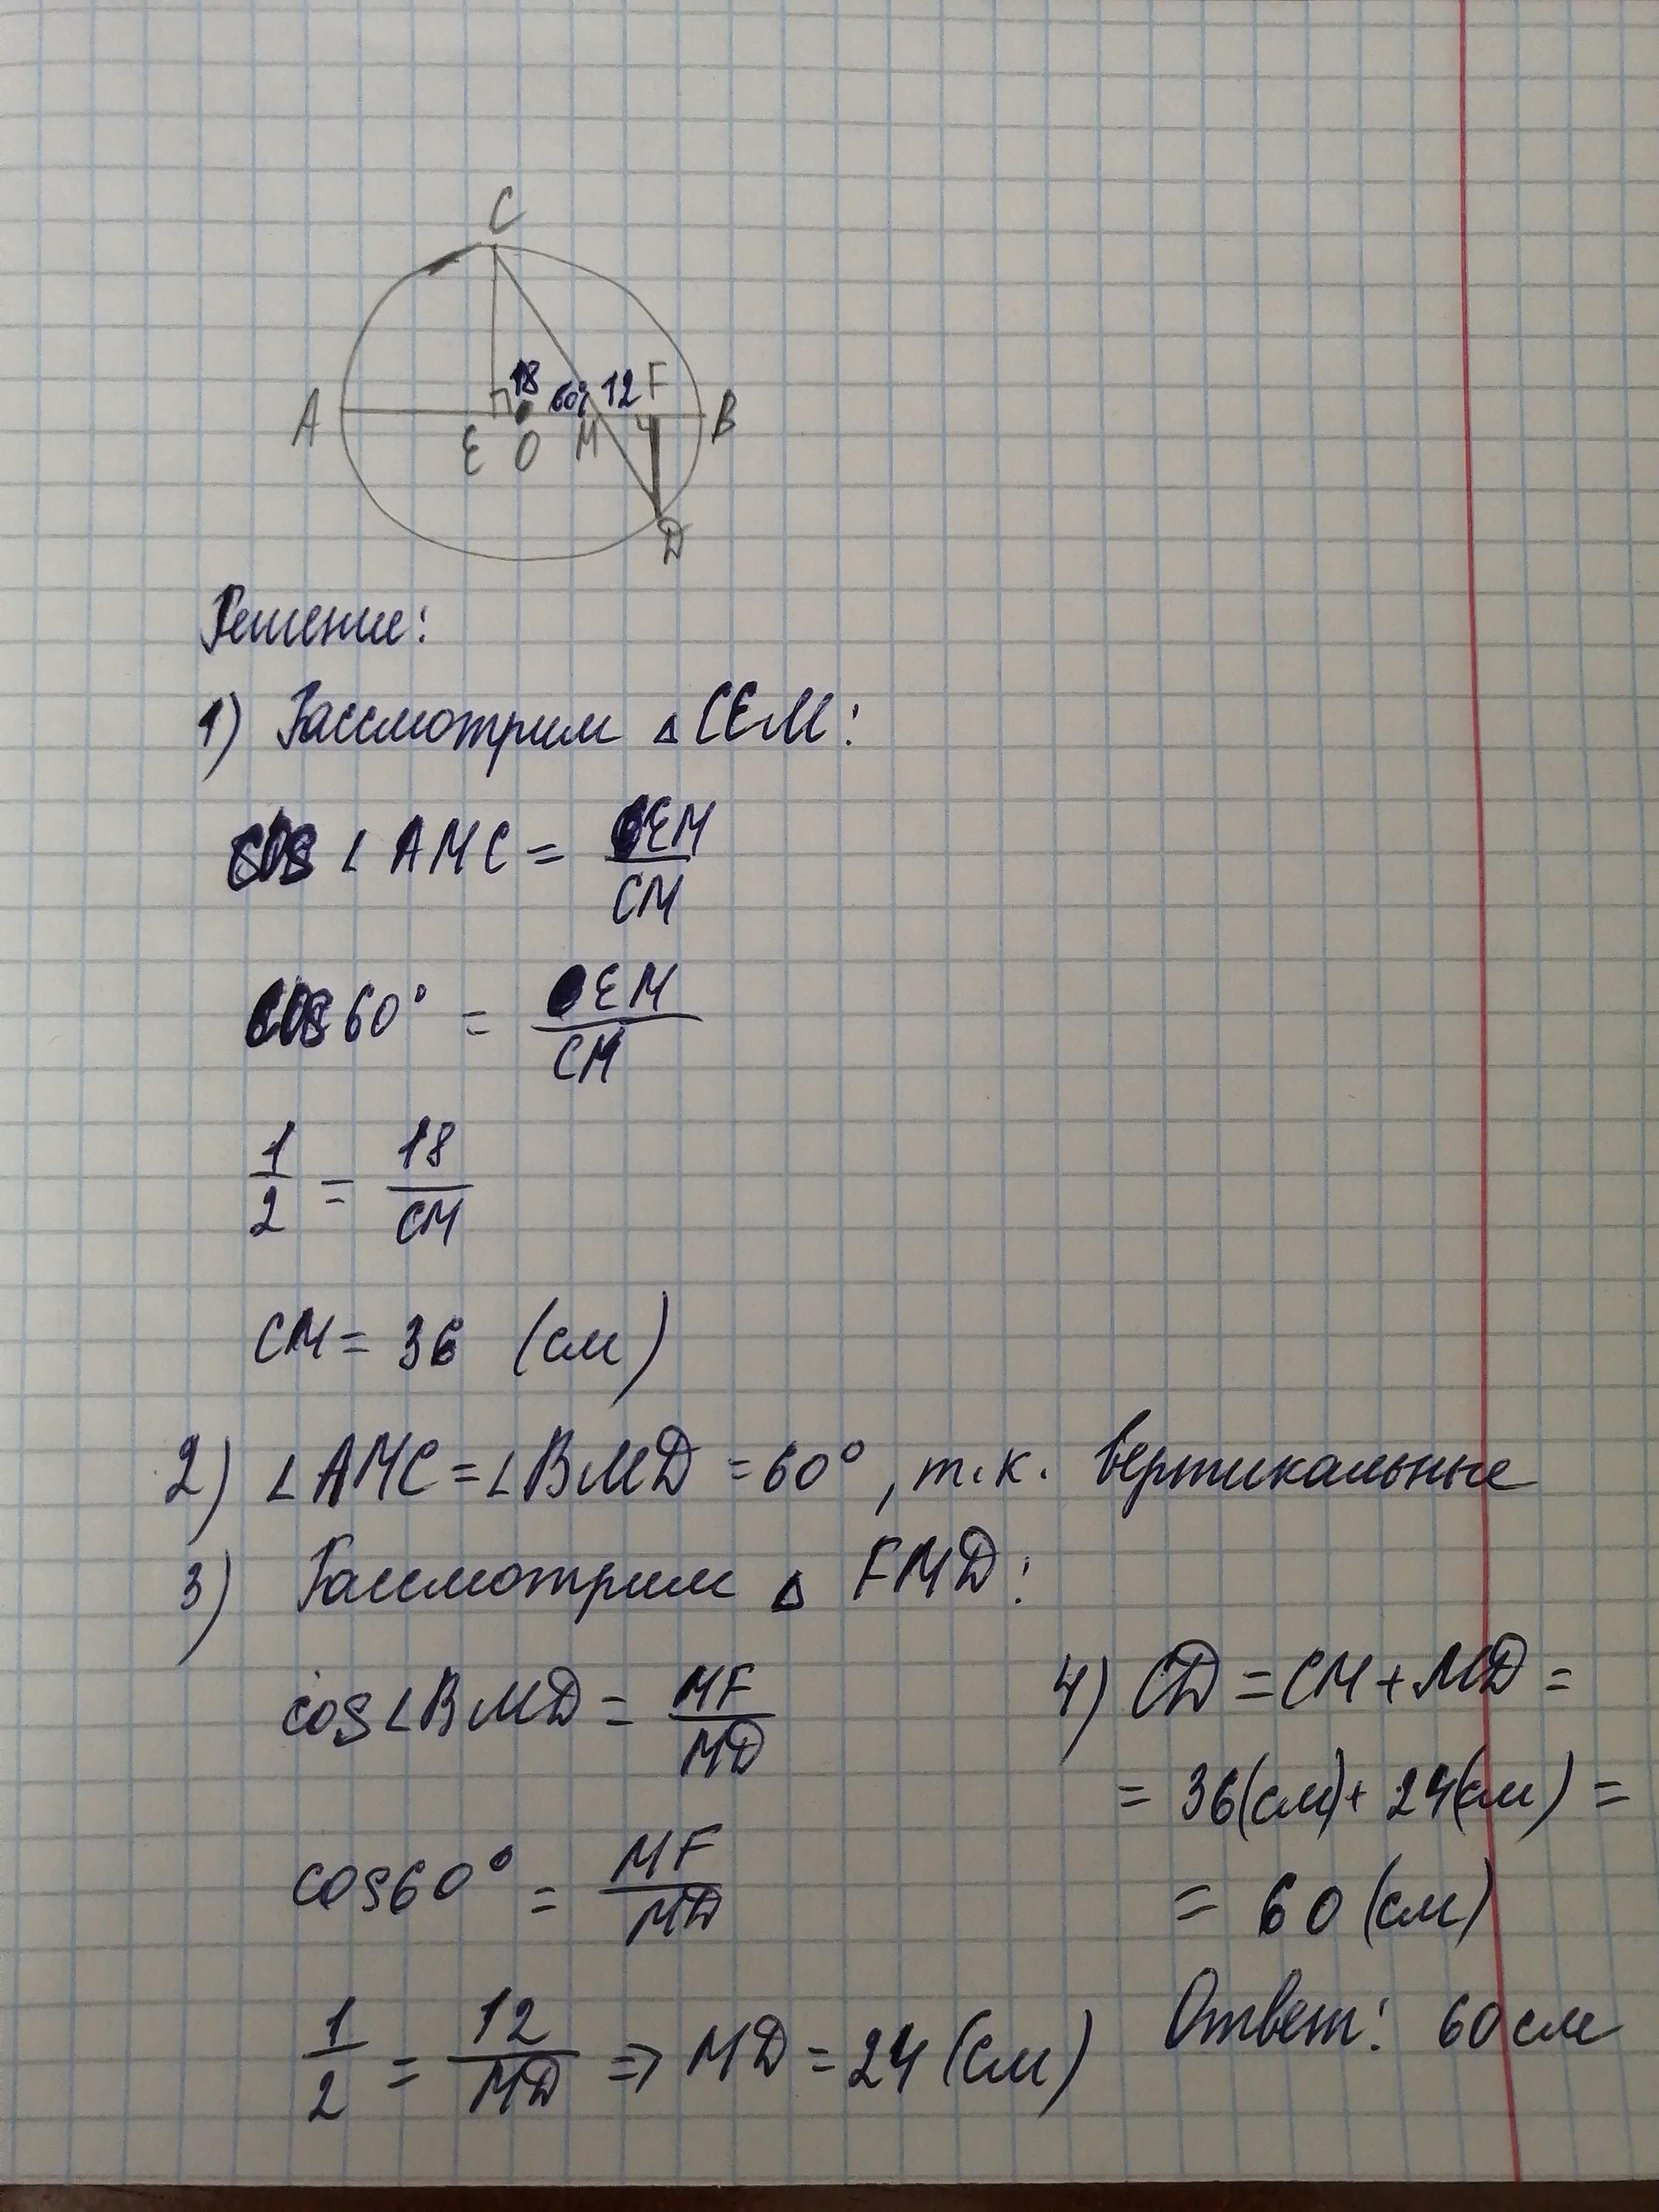 C
18 60° 12 F
A E O M B
D
Решение:
1) Рассмотрим △CEM:
cos ∠AMC = EM/CM
cos 60° = EM/CM
1/2 = 18/CM
CM = 36 (см)
2) ∠AMC = ∠BMD = 60°, т.к. вертикальные
3) Рассмотрим △ FMD:
cos∠BMD = MF/MD
cos60° = MF/MD
1/2 = 12/MD => MD = 24 (см)
4) CD = CM + MD =
= 36(см) + 24(см) =
= 60 (см)
Ответ: 60 см